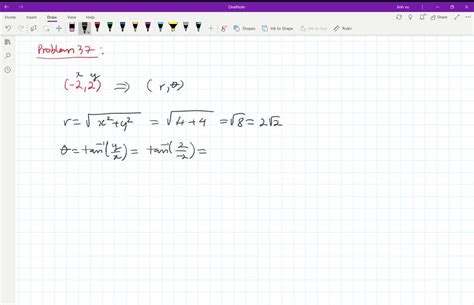 OneNote
File Home Insert Draw View Help
Shapes Ink to Shape Ink to Text
Problem 37:
x y
(-2, 2) ⇒ (r, θ)
r = √(x² + y²) = √(4 + 4) = √8 = 2√2
θ = tan⁻¹(y/x) = tan⁻¹(2/-2) =